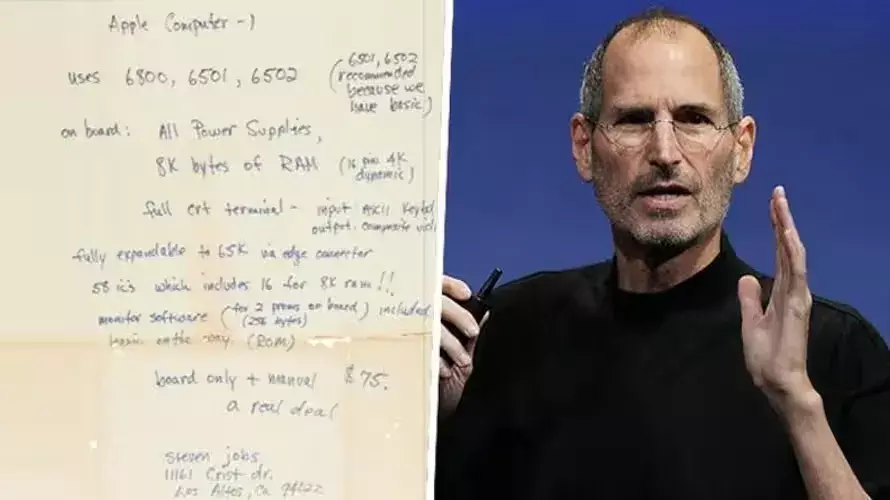 Apple Computer - 1
uses 6800, 6501, 6502
(6501, 6502
recommended
because we
have basic)
on board: All Power Supplies,
8K bytes of RAM (16 pin 4K
dynamic)
full crt terminal - input ASCII Keybd
output composite vid
fully expandable to 65K via edge connector
58 ic's which includes 16 for 8K ram!!
monitor software (for 2 proms on board) included
(256 bytes)
basic on the way (ROM)
board only + manual $75.
a real deal
Steven jobs
11161 Crist dr.
Los Altos, Ca 94022